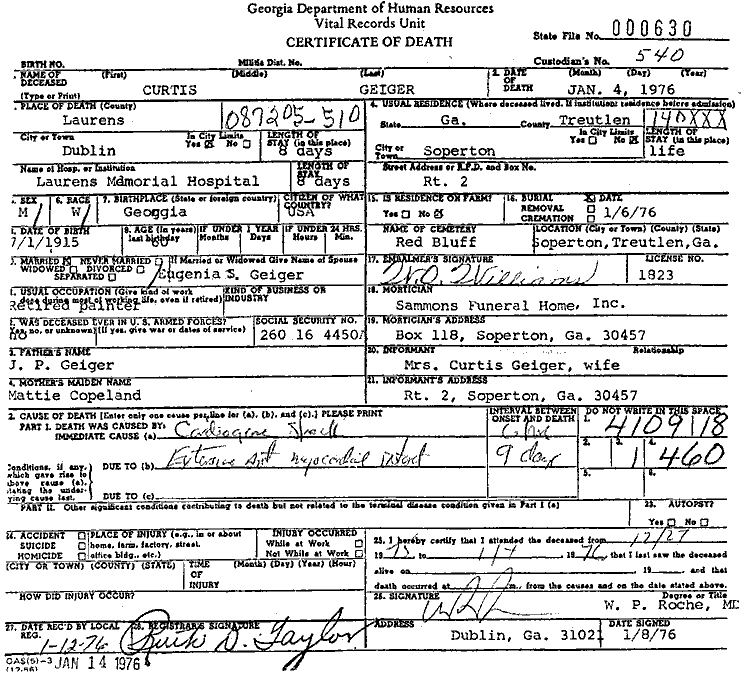 Georgia Department of Human Resources
Vital Records Unit
CERTIFICATE OF DEATH
State File No. 000630
Custodian's No. 540
BIRTH NO. Militia Dist. No.
NAME OF DECEASED (First) (Middle) (Last) 2. DATE OF DEATH (Month) (Day) (Year)
(Type or Print) CURTIS GEIGER JAN. 4, 1976
PLACE OF DEATH (County) 4. USUAL RESIDENCE (Where deceased lived. If institution: residence before admission)
Laurens 087205-510 State Ga. County Treutlen 140XXX
City or Town In City Limits Yes No LENGTH OF STAY (in this place) City or Town In City Limits Yes No LENGTH OF STAY (in this place)
Dublin 8 days Soperton life
Name of Hosp. or Institution LENGTH OF STAY Street Address or R.F.D. and Box No.
Laurens Mamorial Hospital 8 days Rt. 2
SEX 6. RACE 7. BIRTHPLACE (State or foreign country) CITIZEN OF WHAT COUNTRY? 15. IS RESIDENCE ON FARM? 16. BURIAL REMOVAL CREMATION DATE
M W Geoggia USA Yes No 1/6/76
DATE OF BIRTH 9. AGE (In years) last birthday IF UNDER 1 YEAR Months Days IF UNDER 24 HRS. Hours Min. NAME OF CEMETERY LOCATION (City or Town) (County) (State)
7/1/1915 60 Red Bluff Soperton,Treutlen,Ga.
MARRIED NEVER MARRIED WIDOWED DIVORCED SEPARATED If Married or Widowed Give Name of Spouse 17. EMBALMER'S SIGNATURE LICENSE NO.
Eugenia S. Geiger Williams 1823
USUAL OCCUPATION (Give kind of work done during most of working life, even if retired) KIND OF BUSINESS OR INDUSTRY 18. MORTICIAN
Retired painter Sammons Funeral Home, Inc.
WAS DECEASED EVER IN U.S. ARMED FORCES? (Yes, no, or unknown) (If yes, give war or dates of service) SOCIAL SECURITY NO. 19. MORTICIAN'S ADDRESS
no 260 16 4450A Box 118, Soperton, Ga. 30457
FATHER'S NAME 20. INFORMANT Relationship
J. P. Geiger Mrs. Curtis Geiger, wife
MOTHER'S MAIDEN NAME 21. INFORMANT'S ADDRESS
Mattie Copeland Rt. 2, Soperton, Ga. 30457
CAUSE OF DEATH [Enter only one cause per line for (a), (b), and (c).] PLEASE PRINT INTERVAL BETWEEN ONSET AND DEATH DO NOT WRITE IN THIS SPACE
PART I. DEATH WAS CAUSED BY: IMMEDIATE CAUSE (a) 1. 4109118
Conditions, if any, which gave rise to above cause (a), stating the underlying cause last. DUE TO (b) myocardial 9 days 2. 3. 1 4. 460
DUE TO (c) 5. 6.
PART II. Other significant conditions contributing to death but not related to the terminal disease condition given in Part I (a) 23. AUTOPSY?
Yes No
24. ACCIDENT SUICIDE HOMICIDE PLACE OF INJURY (e.g., in or about home, farm, factory, street, office bldg., etc.) INJURY OCCURRED While at Work Not While at Work
25. I hereby certify that I attended the deceased from 12/27
1975 to 1/4 1976 that I last saw the deceased
(CITY OR TOWN) (COUNTY) (STATE) TIME OF INJURY Month) (Day) (Year) (Hour) alive on 19 and that
death occurred at m., from the causes and on the date stated above.
HOW DID INJURY OCCUR? 26. SIGNATURE Degree or Title
W. P. Roche, MD
27. DATE REC'D BY LOCAL REG. 28. REGISTRAR'S SIGNATURE ADDRESS DATE SIGNED
1-12-76 Ruth D. Taylor Dublin, Ga. 31021 1/8/76
JAN 14 1976